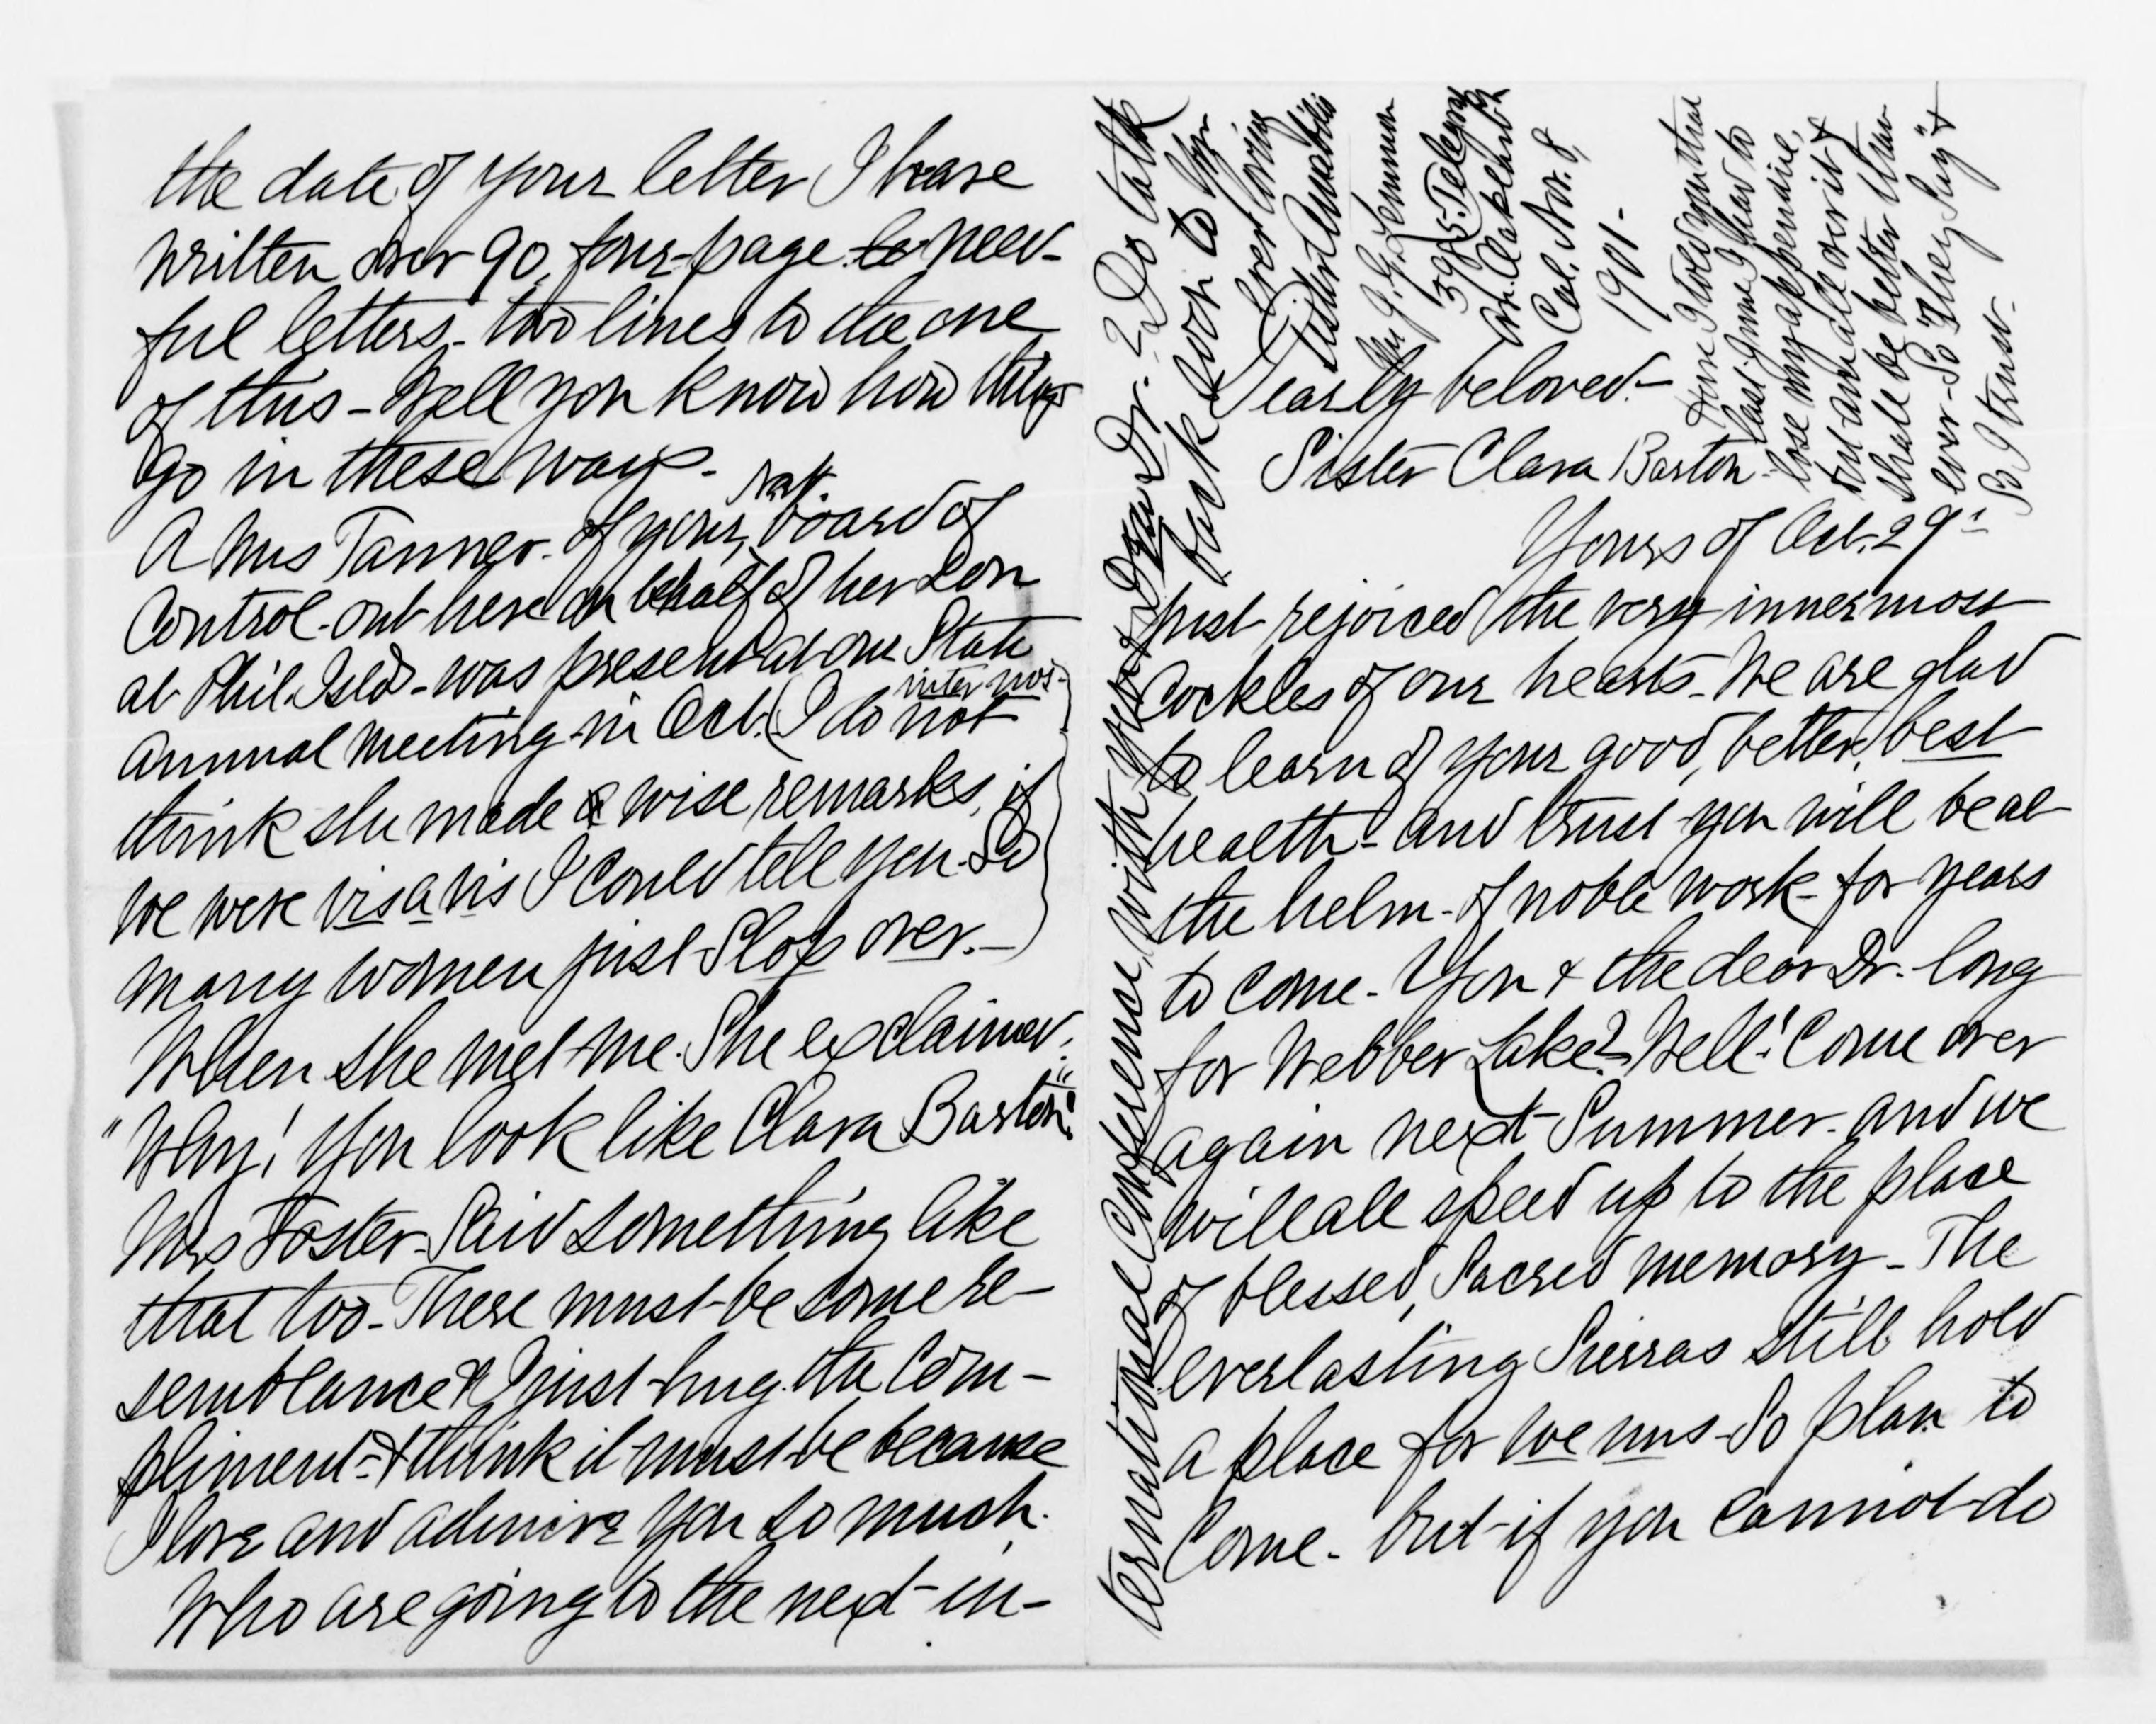 the date of your letter I have
written over 90 four-page le need-
ful letters - two lines to the one
of this - Well you know how things
go in these ways -
A Mrs Tanner - of your Nat. board of
Control - out here on behalf of her son
at Phil. Islds - was present at our State
annual meeting in Oct. (I do not inter nos -
think she made a wise remarks, if
we were vis a vis I could tell you. So
many women just slop over. -)
When she met me. She exclaimed:
"Why! you look like Clara Barton!"
Mrs Foster - said something like
that too - There must be some re-
semblance & I just hug the com-
pliment - & think it must be because
I love and admire you so much.
Who are going to the next in-
ternational Conference, with you & Dear Dr - ? Do talk
back soon to Yr
Ever loving
Sister Amabilis
Mrs J. G. Lemmon
5985 Telegraph
Av. Oakland
Cal. Nov. 8,
1901 -
Dearly beloved. -
Sister Clara Barton -
Yours of Oct. 29"
just rejoiced the very innermost
Cockles of our hearts - We are glad
to learn of your good, better, best
health - and trust you will be at
the helm - of noble work - for years
to come - You & the dear Dr. long
for Webber Lake? - Well! Come over
again next Summer - and we
will all speed up to the place
of blessed, sacred memory - The
everlasting Sierras still hold
a place for we uns - So plan to
Come - but if you cannot do
have I told you that
last June I had to
lose my appendix,
but am all over it &
shall be better than
ever - So "they say" &
So I trust -